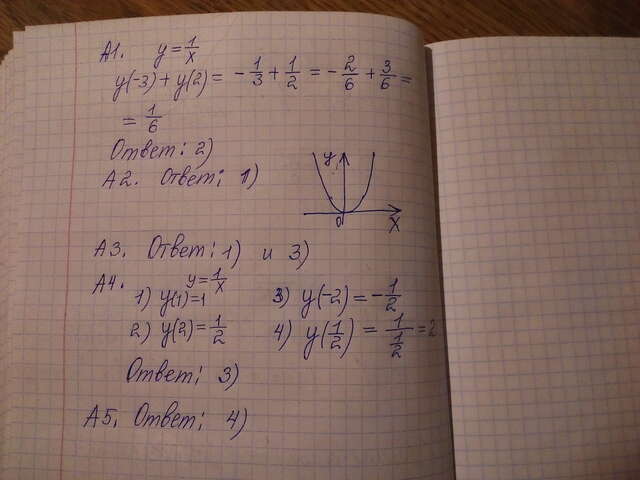 А1. y = 1/x
y(-3) + y(2) = -1/3 + 1/2 = -2/6 + 3/6 =
= 1/6
Ответ: 2)
А2. Ответ: 1)
y
0
x
А3. Ответ: 1) и 3)
А4. y = 1/x
1) y(1) = 1 3) y(-2) = -1/2
2) y(2) = 1/2 4) y(1/2) = 1/(1/2) = 2
Ответ: 3)
А5. Ответ: 4)